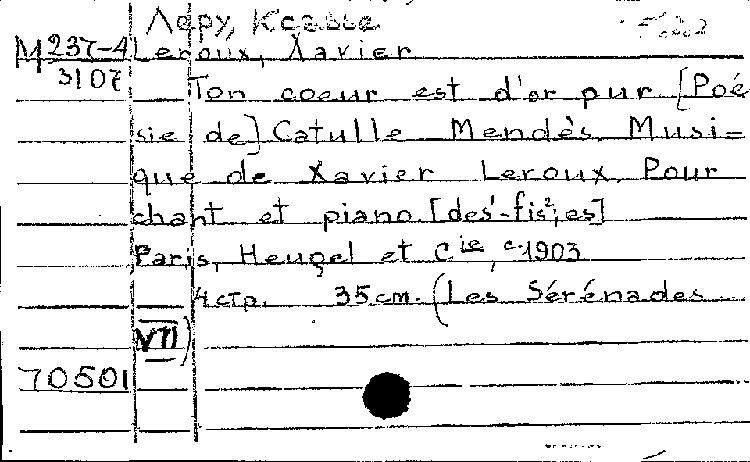 Леру, Ксавье
М 237-4 Leroux, Xavier
3107 Ton coeur est d'or pur. [Poé
sie de] Catulle Mendès. Musi=
que de Xavier Leroux. Pour
chant et piano. [des¹-fis²; es]
Paris, Heugel et Cie, c. 1903
4 стр. 35 cm. (Les Sérénades
VII)
70501